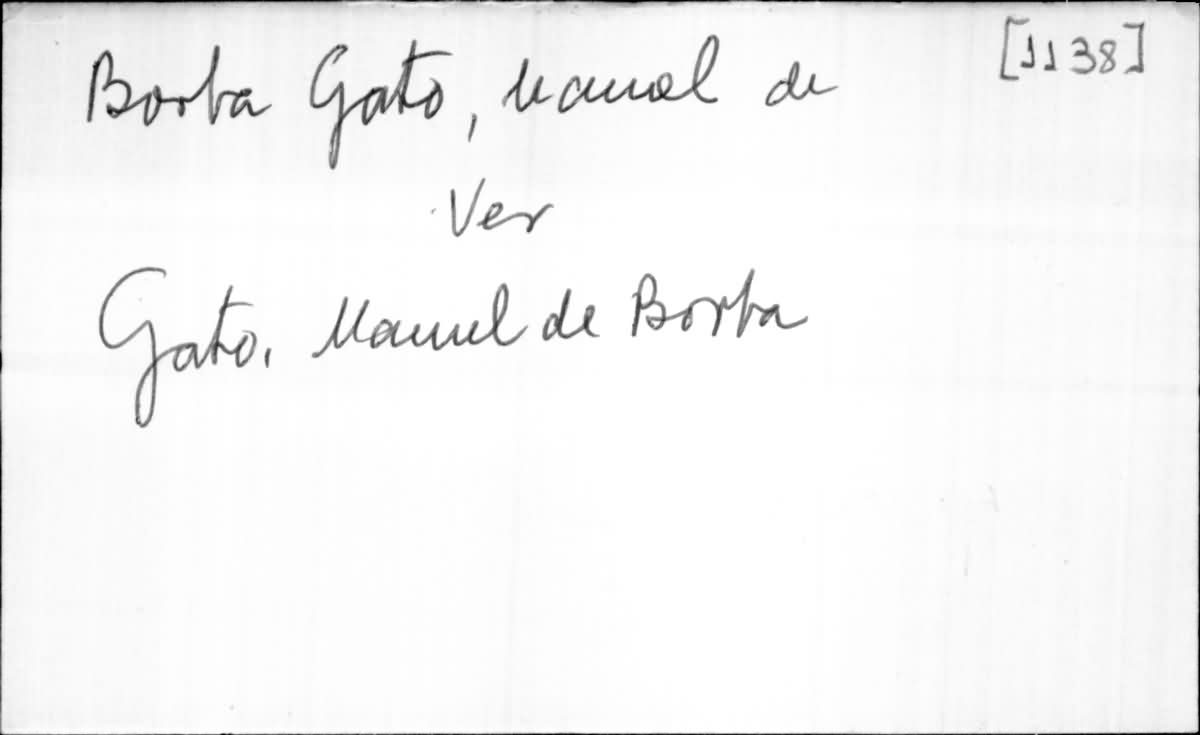 Borba Gato, Manoel de [1138]
Ver
Gato, Manuel de Borba